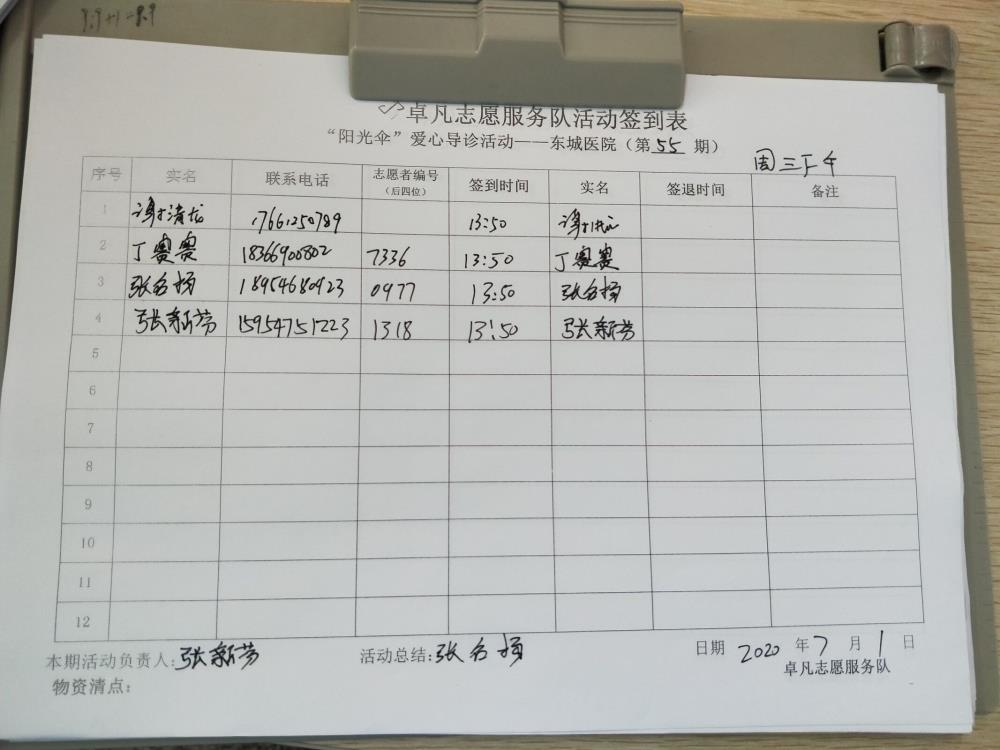 卓凡志愿服务队活动签到表
“阳光伞”爱心导诊活动——东城医院（第55期）
周三下午
序号 实名 联系电话 志愿者编号（后四位） 签到时间 实名 签退时间 备注
1 谢清龙 17661250789 13:50 谢清龙
2 丁赛赛 18366900802 7336 13:50 丁赛赛
3 张名扬 18954680923 0977 13:50 张名扬
4 张新芳 15954751223 1318 13:50 张新芳
5
6
7
8
9
10
11
12
本期活动负责人:张新芳 活动总结:张名扬 日期 2020 年 7 月 1 日
物资清点: 卓凡志愿服务队